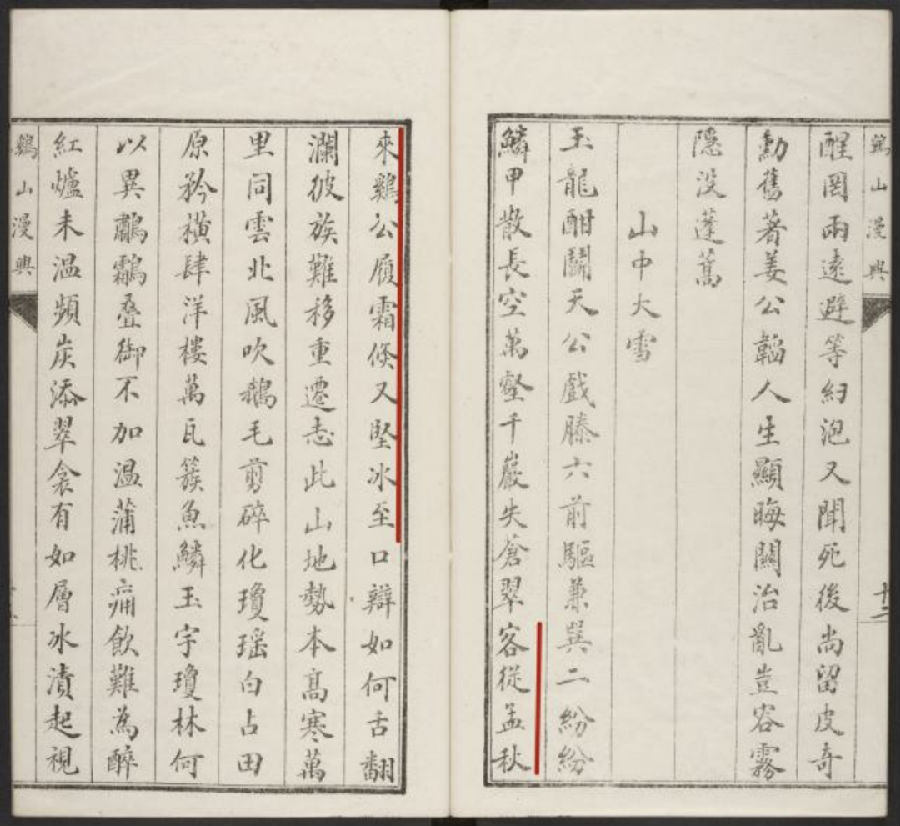 鷄山漫興
十二
醒罔兩遠避等幻泡又聞死後尚留皮奇
勳舊著姜公韜人生顯晦關治亂豈容霧
隱沒蓬蒿
山中大雪
玉龍酣鬭天公戲滕六前驅兼巽二紛紛
鱗甲散長空萬壑千巖失蒼翠客從孟秋
來鷄公履霜倏又堅冰至口辯如何舌翻
瀾彼族難移重遷志此山地勢本高寒萬
里同雲北風吹鵝毛剪碎化瓊瑤白占田
原矜橫肆洋樓萬瓦簇魚鱗玉宇瓊林何
以異鸘疊御不加温蒲桃痛飲難為醉
紅爐未温頻炭添翠衾有如層冰漬起視
鷄山漫興